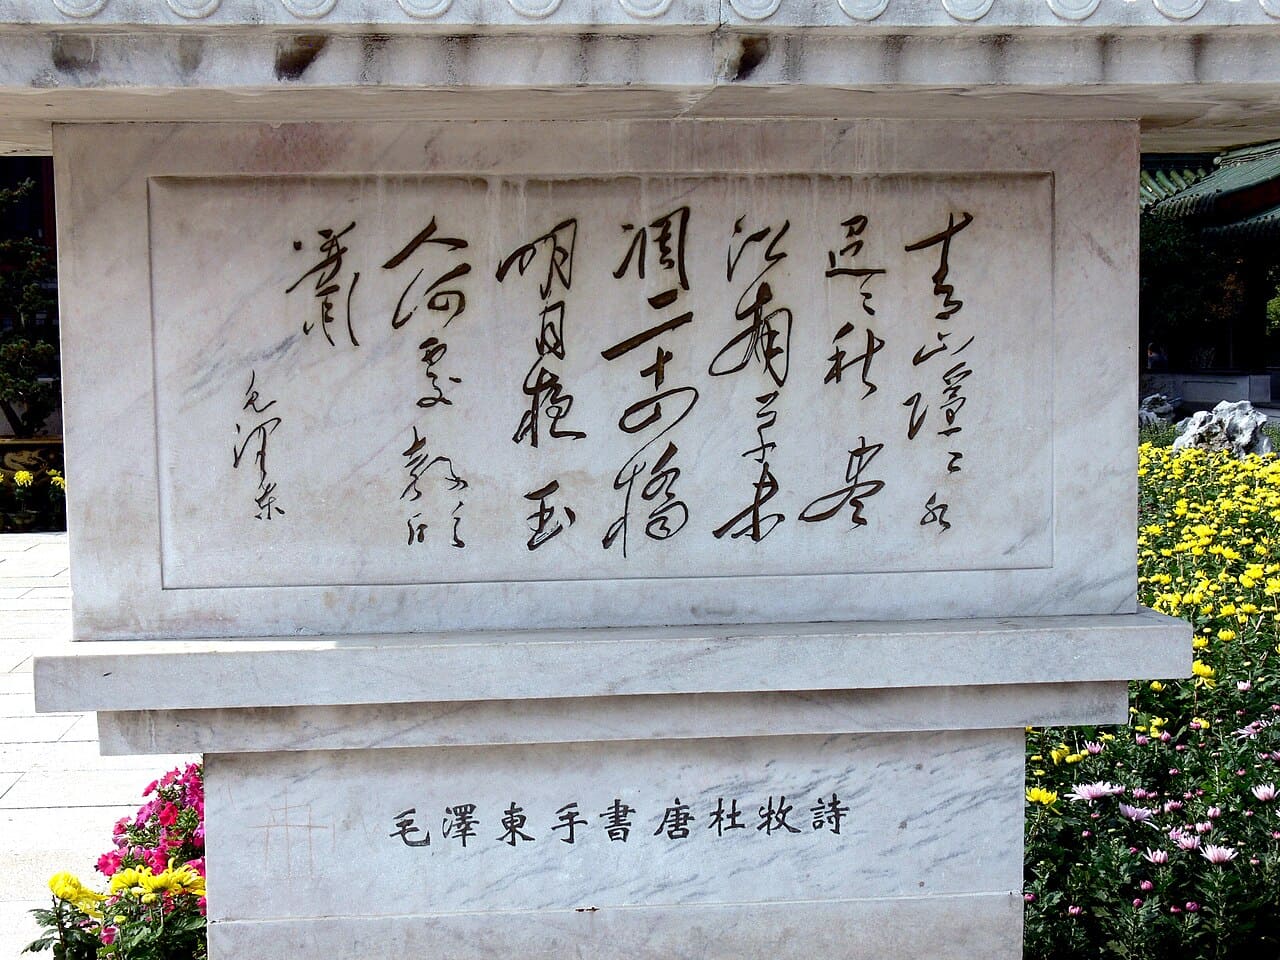 青山隱〻水
迢〻秋盡
江南草未
凋二十四橋
明月夜玉
人何處教吹
簫
毛澤東
毛澤東手書唐杜牧詩